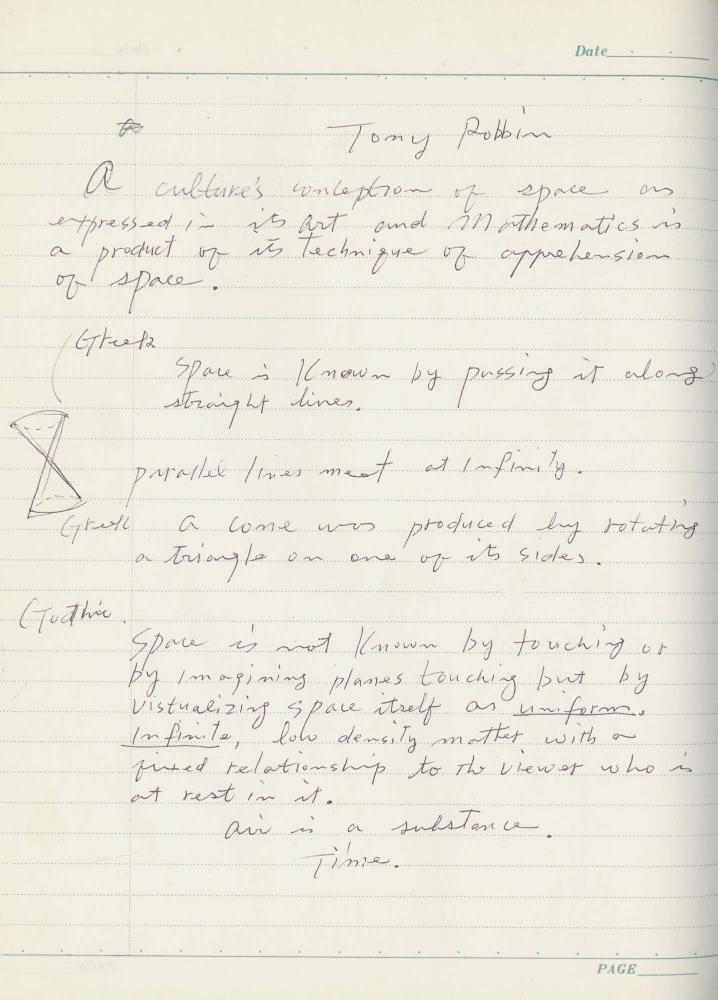 Date
Tony Robbin
A culture's conception of space as
expressed in its art and Mathematics is
a product of its technique of apprehension
of space.
Greek
Space is Known by passing it along
straight lines.
parallel lines meet at Infinity.
Greek a cone was produced by rotating
a triangle on one of its sides.
Gothic.
Space is not Known by touching or
by Imagining planes touching but by
vistualizing space itself as uniform.
Infinite, low density matter with a
fixed relationship to the viewer who is
at rest in it.
air is a substance.
Time.
PAGE